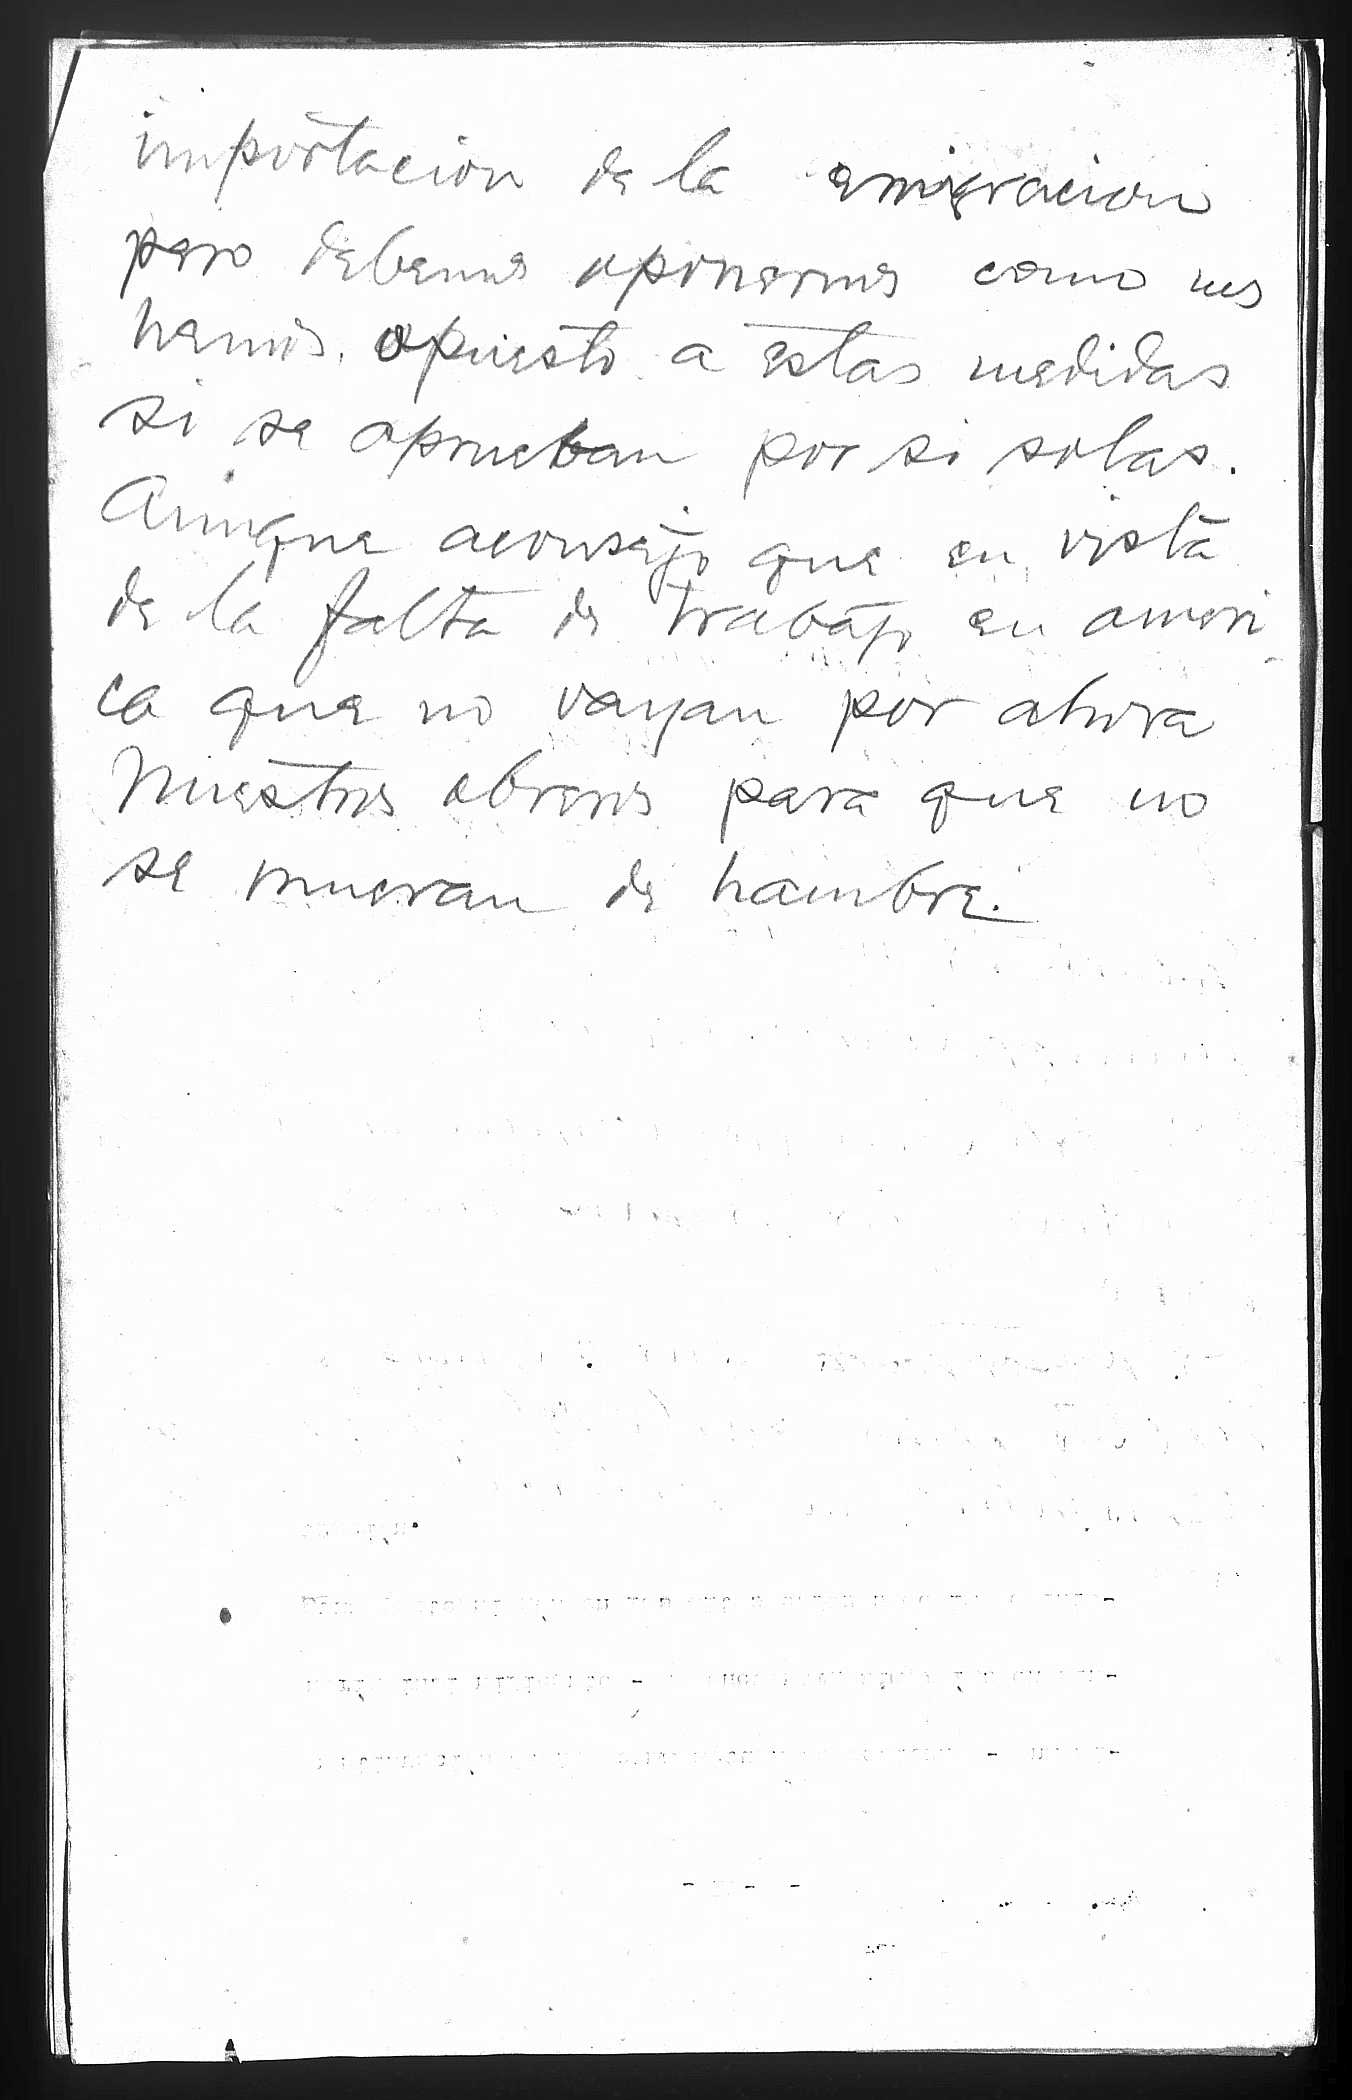 importacion de la emigracion
pero debemos oponernos como nos
hemos opuesto a estas medidas
si se aprueban por si solas.
Aunque aconsejo que en vista
de la falta de trabajo en ameri
ca que no vayan por ahora
Nuestros obreros para que no
se mueran de hambre.